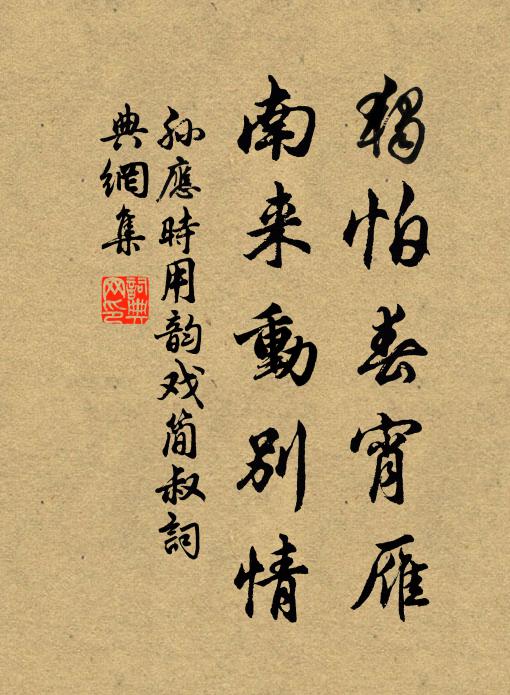 獨怕春宵雁
南来動別情
孙應時用韵戏簡叔詞
典網集
詞典网印